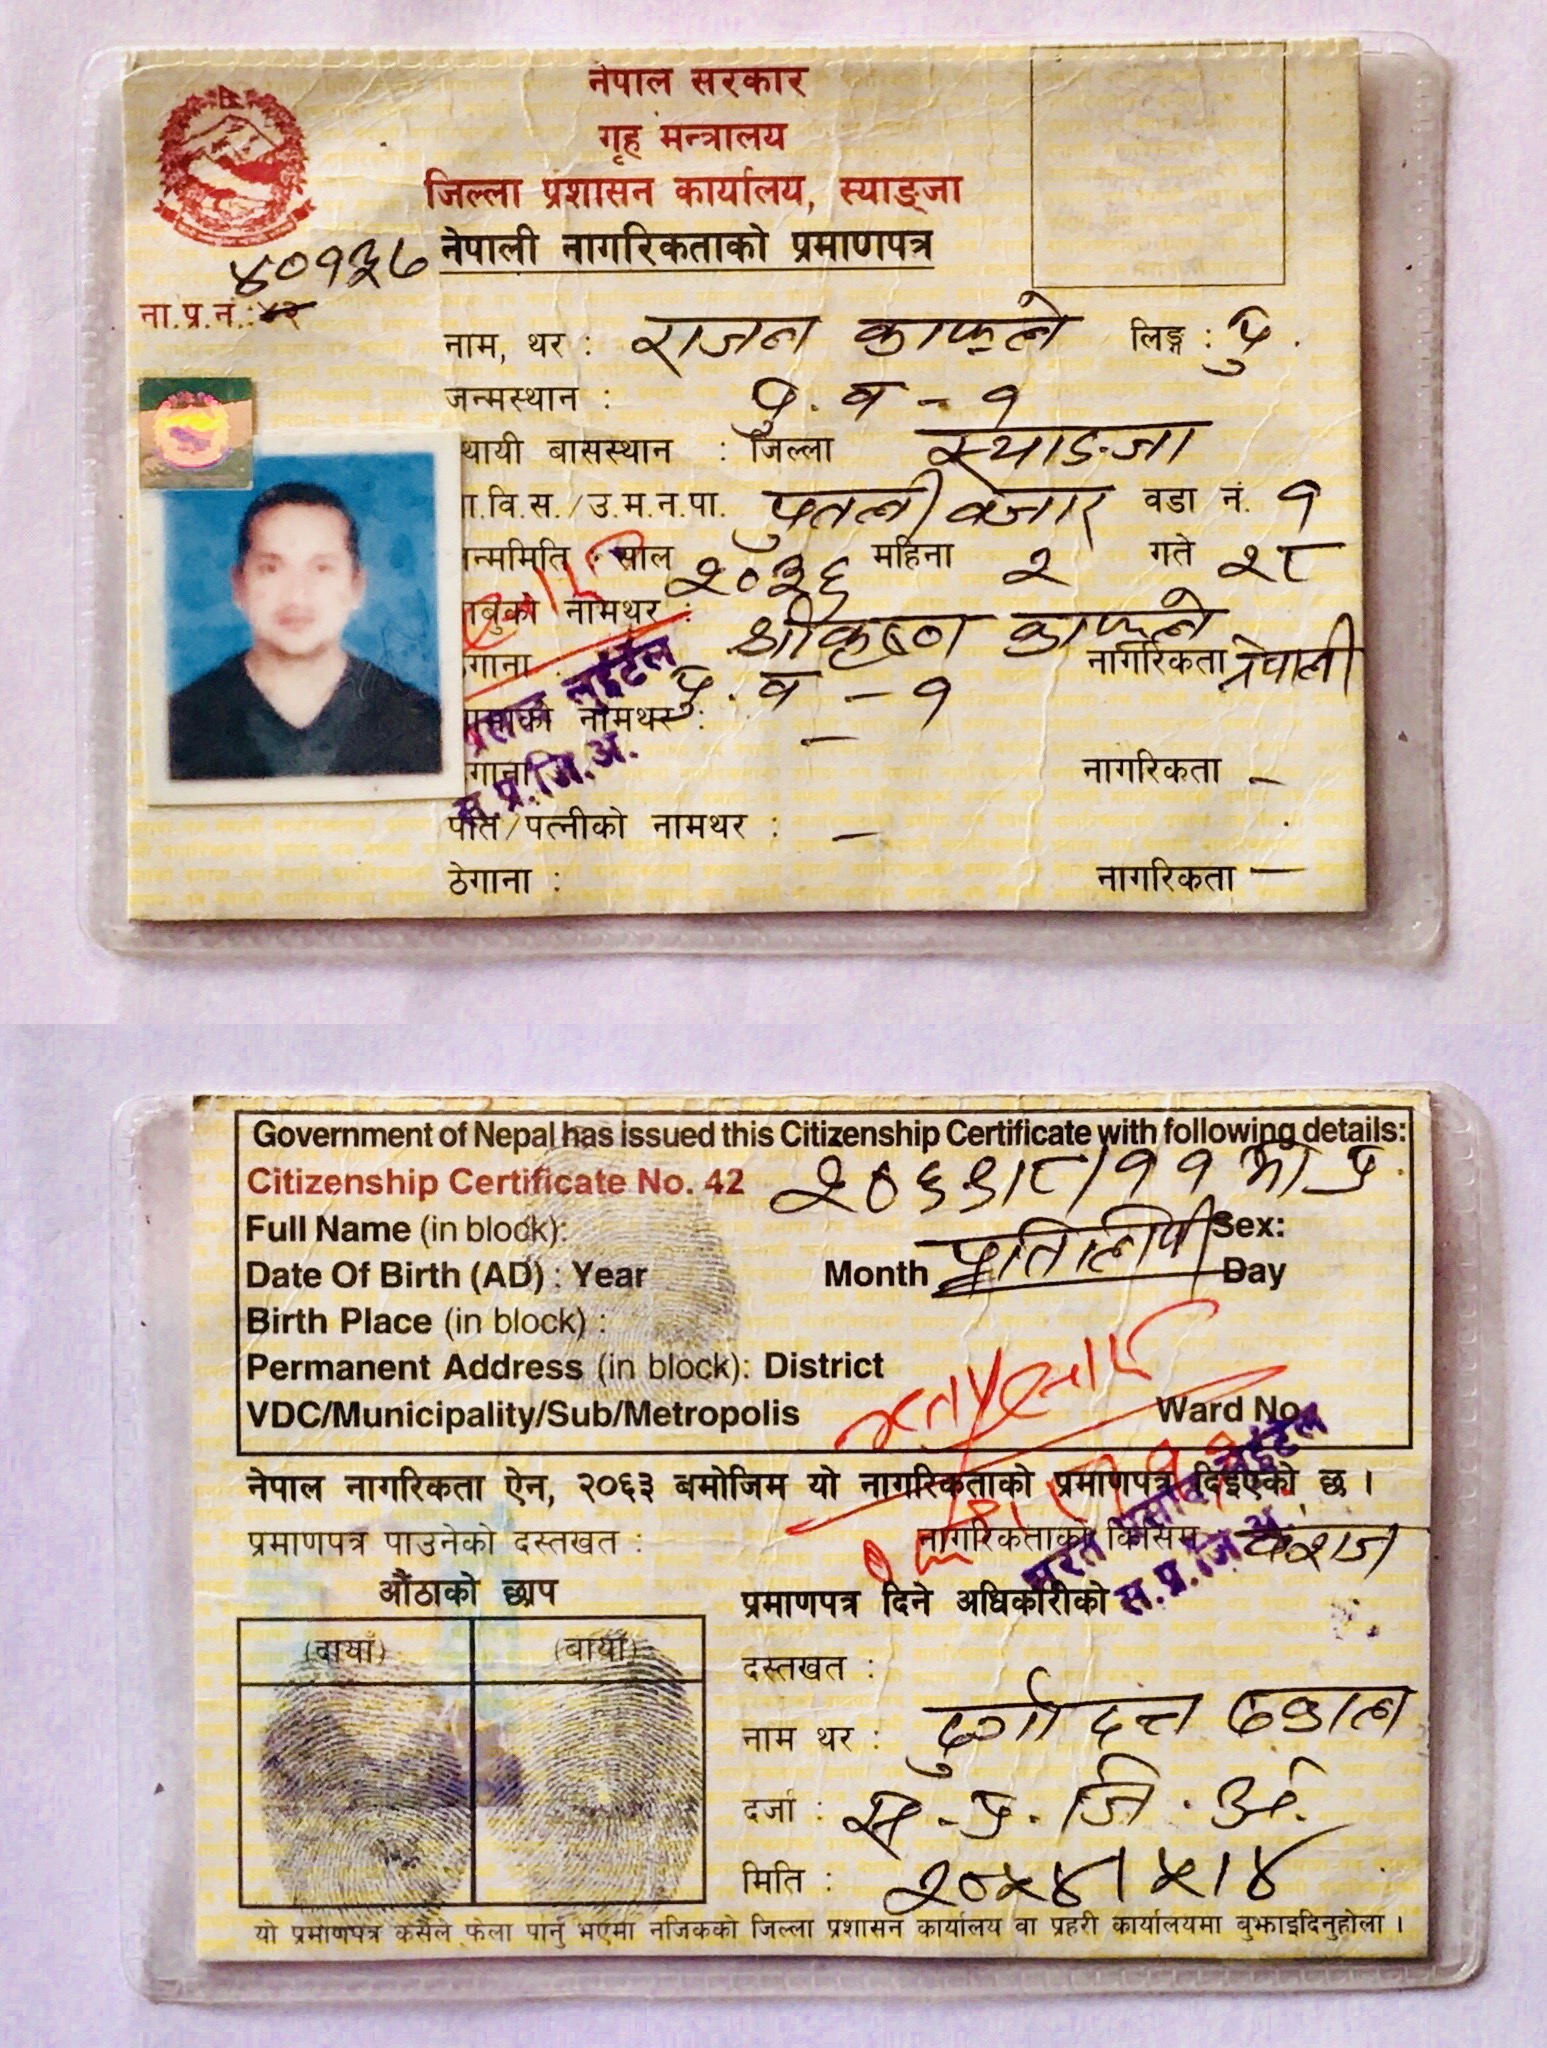 नेपाल सरकार
गृह मन्त्रालय
जिल्ला प्रशासन कार्यालय, स्याङ्जा
नेपाली नागरिकताको प्रमाणपत्र
४०१३७
ना.प्र.नं.:४२
नाम, थर : राजन काफ्ले लिङ्ग : पु.
जन्मस्थान : पु. व - १
थायी बासस्थान : जिल्ला स्याङजा
ा.वि.स./उ.म.न.पा. पुतलीबजार वडा नं. १
न्ममिति : साल २०३६ महिना २ गते २८
ाबुको नामथर : श्रीकृष्ण काफ्ले
ेगाना : पु. व - १ नागरिकता नेपाली
ामाको नामथर : -
ेगाना नागरिकता -
पति/पत्नीको नामथर : -
ठेगाना : नागरिकता -
लुईटेल
स.प्र.जि.अ.
Government of Nepal has issued this Citizenship Certificate with following details:
Citizenship Certificate No. 42 २०६९।८।११ मा प्र.
प्रतिलिपी
Full Name (in block): Sex:
Date Of Birth (AD) : Year Month Day
Birth Place (in block) :
Permanent Address (in block): District
VDC/Municipality/Sub/Metropolis Ward No.
नेपाल नागरिकता ऐन, २०६३ बमोजिम यो नागरिकताको प्रमाणपत्र दिइएको छ ।
प्रमाणपत्र पाउनेको दस्तखत : नागरिकताको किसिम वंशज
औंठाको छाप
प्रमाणपत्र दिने अधिकारीको
लुईटेल
स.प्र.जि.अ.
(दायाँ) (बायाँ)
दस्तखत :
नाम थर : दुर्गा दत्त ढकाल
दर्जा : स. प्र. जि. अ.
मिति : २०५४।५।४
यो प्रमाणपत्र कसैले फेला पार्नु भएमा नजिकको जिल्ला प्रशासन कार्यालय वा प्रहरी कार्यालयमा बुझाइदिनुहोला ।